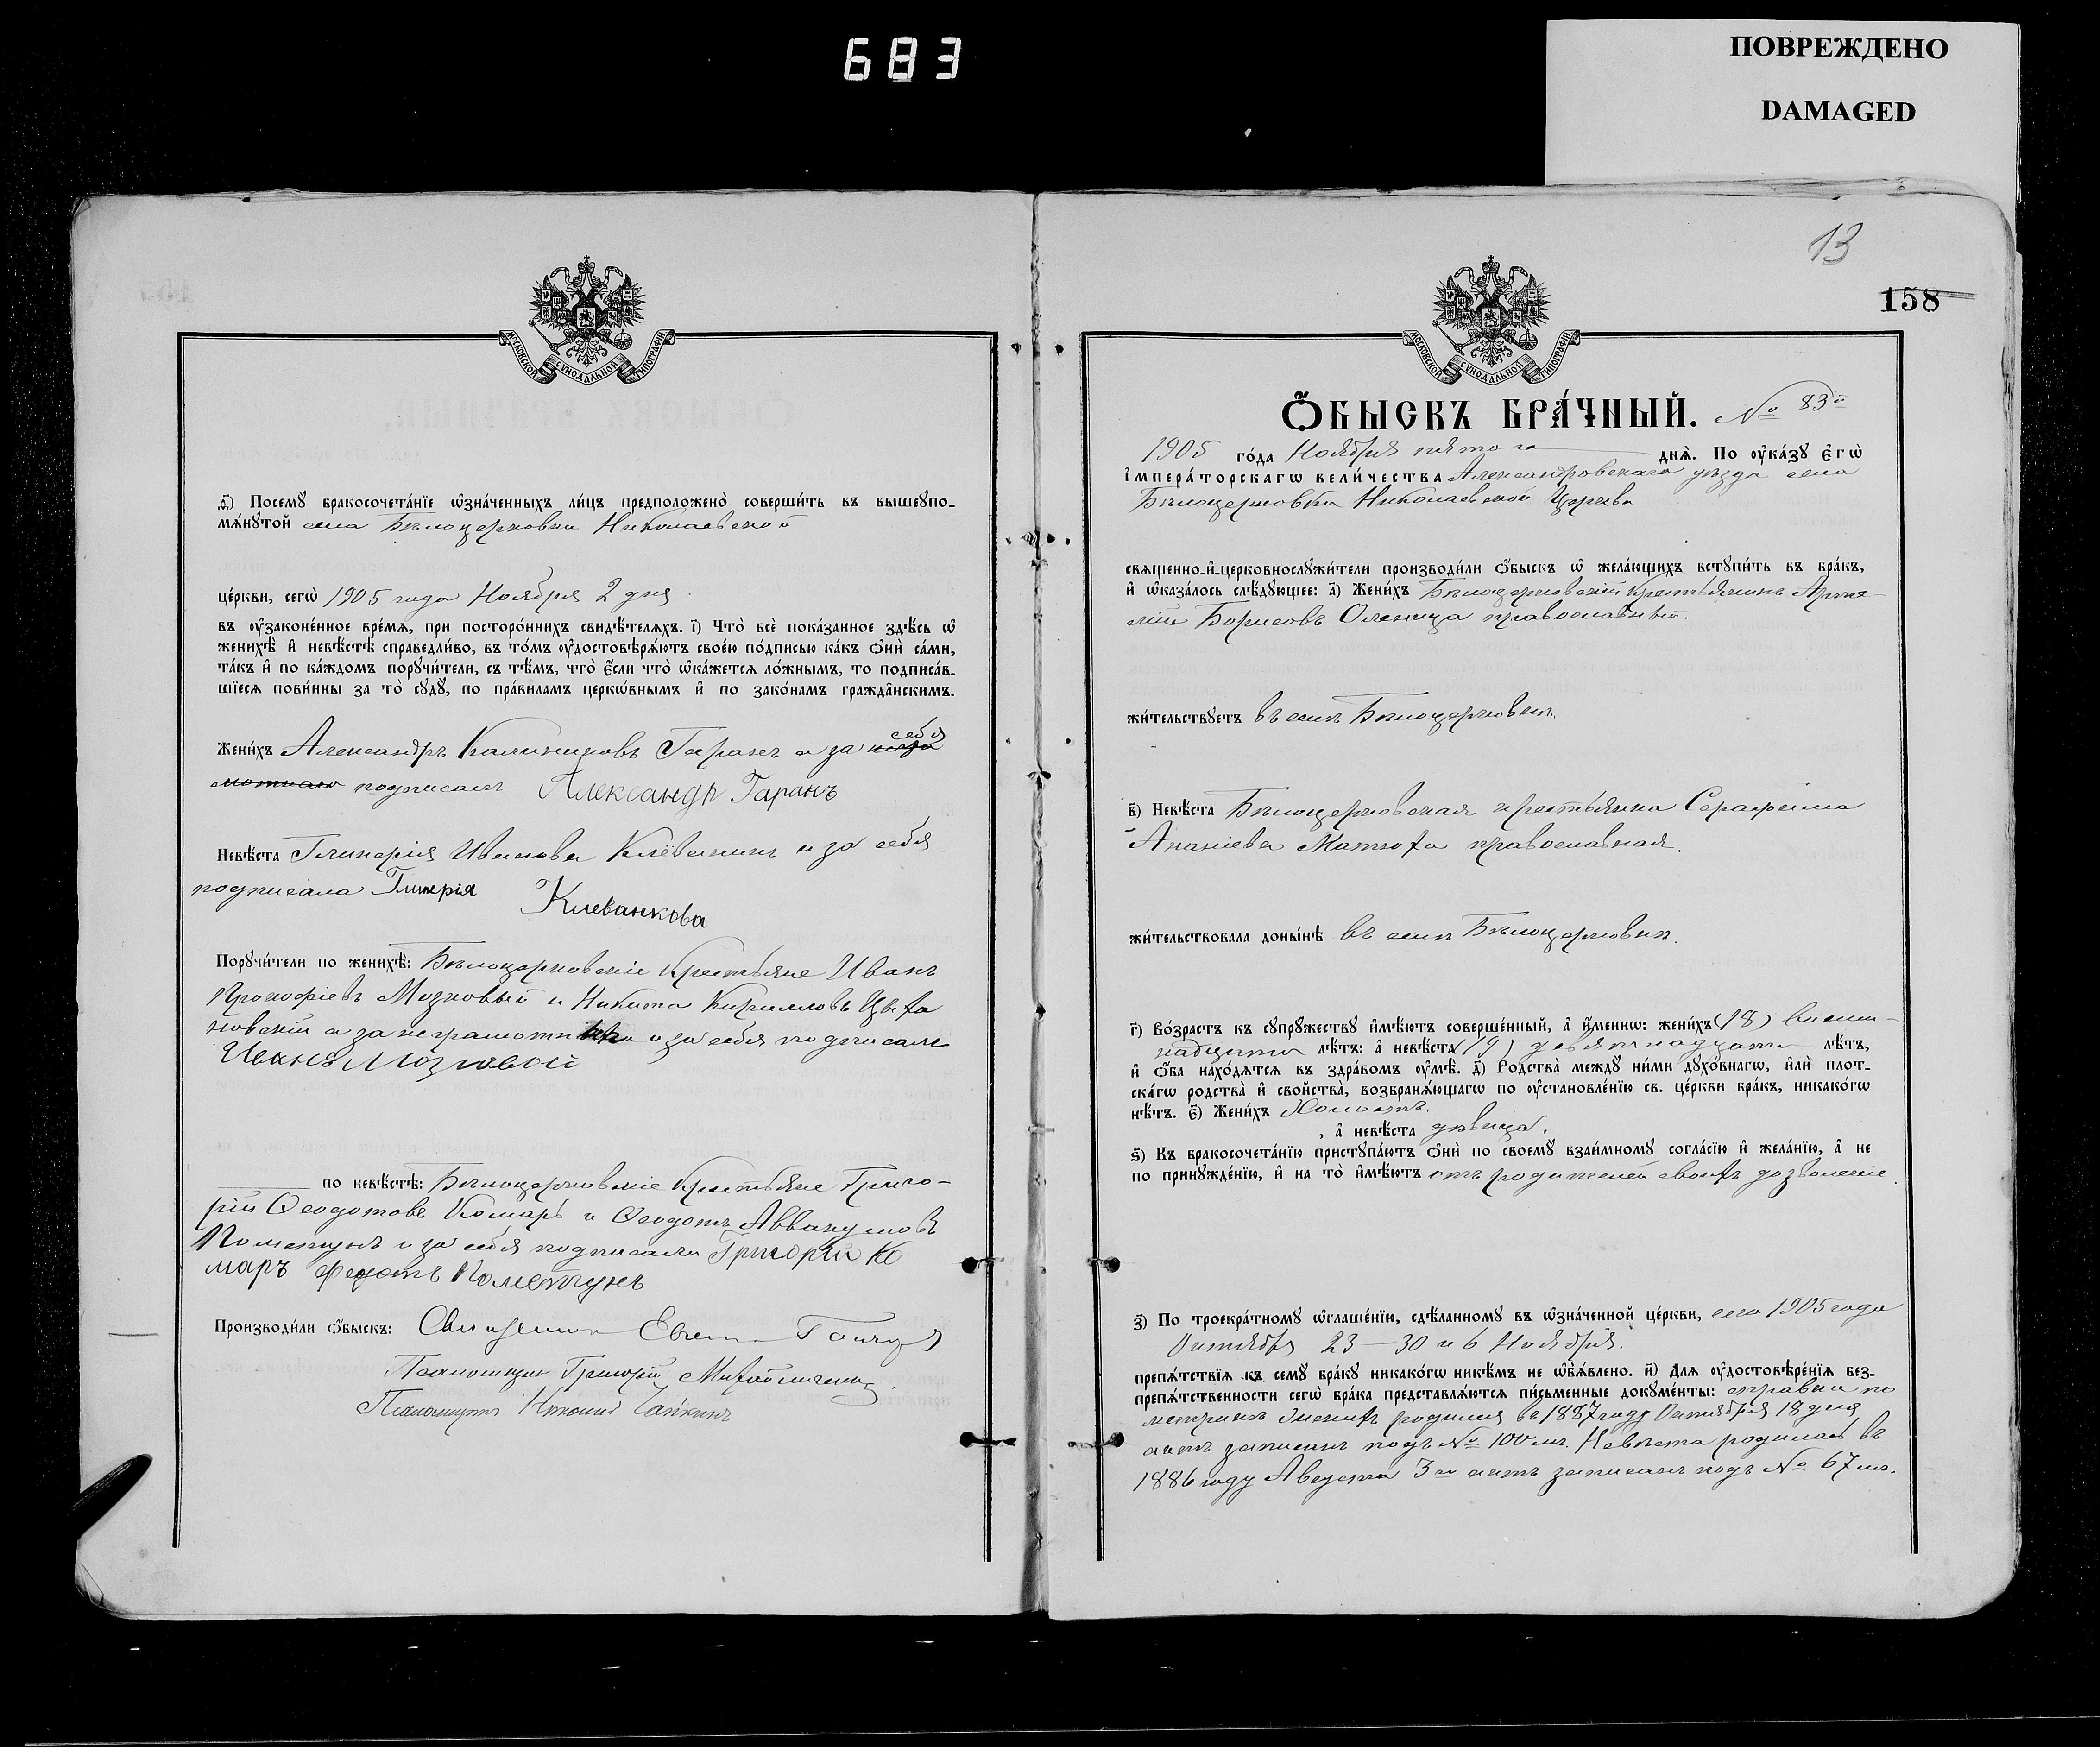 683
ПОВРЕЖДЕНО
DAMAGED
МОСКОВСКОЙ СѴНОДАЛЬНОЙ ТИПОГРАФІИ
Посемꙋ̀ бракосочета́нїе ѡ҆зна́ченныхъ ли́цъ предположено̀ соверши́ть въ вышеꙋпо-
мѧ́нꙋтой села Бѣлоцерковки Николаевской
це́ркви, сегѡ̀ 1905 года Ноября 2 дня
въ ᲂу҆зако́ненное вре́мѧ, при посторо́ннихъ свидѣ́телѧхъ. і҃) Что̀ всѐ пока́занное здѣ́сь ѡ҆
женихѣ̀ и҆ невѣ́стѣ справедли́во, въ то́мъ ᲂу҆достовѣрѧ́ютъ свое́ю по́дписью ка́къ ѻ҆нѝ са́ми,
та́къ и҆ по ка́ждомъ порꙋчи́тели, съ тѣ́мъ, что̀ є҆́сли что̀ ѡ҆ка́жетсѧ ло́жнымъ, то подписа́в-
шїесѧ пови́нны за то̀ сꙋдꙋ̀, по пра́виламъ церкѡ́внымъ и҆ по зако́намъ гражда̑нскимъ.
Жени́хъ Александръ Калиниковъ Гаранъ а за себя
подписалъ Александръ Гаранъ
Невѣ́ста Гликерія Иванова и за себя
подписала Гликерія
Клеванкова
Порꙋчи́тели по женихѣ̀: Бѣлоцерковскіе Крестьяне Иванъ
Прокофіевъ Мозковый и Никита Кирилловъ Цыха
новскій а за неграмотн и за себя подписалъ
Иванъ Мозговой
по невѣ́стѣ: Бѣлоцерковскіе Крестьяне Григо-
рій Ѳеодотовъ Комаръ и Ѳеодотъ Аввакумовъ
Пометунъ и за себя подписали Григорій Ко
маръ Федотъ Пометунъ
Производи́ли ѻ҆́быскъ: Священникъ Евгеній
Псаломщикъ Григорій
Псаломщикъ
13
158
МОСКОВСКОЙ СѴНОДАЛЬНОЙ ТИПОГРАФІИ
Ѻ҆́БЫСКЪ БРА́ЧНЫЙ. № 83й
1905 го́да Ноября пятого днѧ̀. По ᲂу҆ка́зꙋ Є҆гѡ̀
І҆мпера́торскагѡ вели́чества Александровскаго уѣзда села
Бѣлоцерковки Николаевской Церкви
свѧщенно-и҆-церковнослꙋжи́тели производи́ли ѻ҆́быскъ ѡ҆ жела́ющихъ встꙋпи́ть въ бра́къ,
и҆ ѡ҆каза́лось слѣ́дꙋющее: а҃) Жени́хъ Бѣлоцерковскій крестьянинъ Арте-
мій Борисовъ Оленица православный.
жи́тельствꙋетъ въ селѣ Бѣлоцерковкѣ.
в҃) Невѣ́ста Бѣлоцерковская крестьянка Серафима
Ананіева Матюха православная.
жи́тельствовала доны́нѣ въ селѣ Бѣлоцерковкѣ.
г҃) Во́зрастъ къ сꙋпрꙋ́жествꙋ и҆мѣ́ютъ соверше́нный, а҆ и҆́меннѡ: жени́хъ (18) восем-
надцати лѣ́тъ: а҆ невѣ́ста (19) девятнадцати лѣ́тъ,
и҆ ѻ҆́ба нахо́дѧтсѧ въ здра́вомъ ᲂу҆мѣ̀. д҃) Родства̀ междꙋ̀ ни́ми дꙋхо́внагѡ, и҆лѝ плот-
ска́гѡ родства̀ и҆ свойства̀, возбранѧ́ющагѡ по ᲂу҆становле́нїю св. це́ркви бра́къ, никако́гѡ
нѣ́тъ. є҃) Жени́хъ Холостъ.
, а҆ невѣ́ста дѣвица.
ѕ҃) Къ бракосочета́нїю пристꙋпа́ютъ ѻ҆нѝ по своемꙋ̀ взаи́мномꙋ согла́сїю и҆ жела́нїю, а҆ не
по принꙋжде́нїю, и҆ на то̀ и҆мѣ́ютъ отъ родителей своихъ дозволеніе.
з҃) По троекра́тномꙋ ѡ҆глаше́нїю, сдѣ́ланномꙋ въ ѡ҆зна́ченной це́ркви, сего 1905 года
Октября 23 — 30 и 6 Ноября.
препѧ́тствїѧ къ семꙋ̀ бра́кꙋ никако́гѡ никѣ́мъ не ѡ҆б̾ѧ́влено. и҃) Для ᲂу҆достовѣре́нїѧ без-
препѧ́тственности сегѡ̀ бра́ка представлѧ́ютсѧ пи́сьменные докꙋме́нты: справка по
метрикѣ Женихъ родился въ 1887 году Октября 18 дня
актъ записанъ подъ № 100 мъ. Невѣста родилась въ
1886 году Августа 3 го актъ записанъ подъ № 67 мъ.